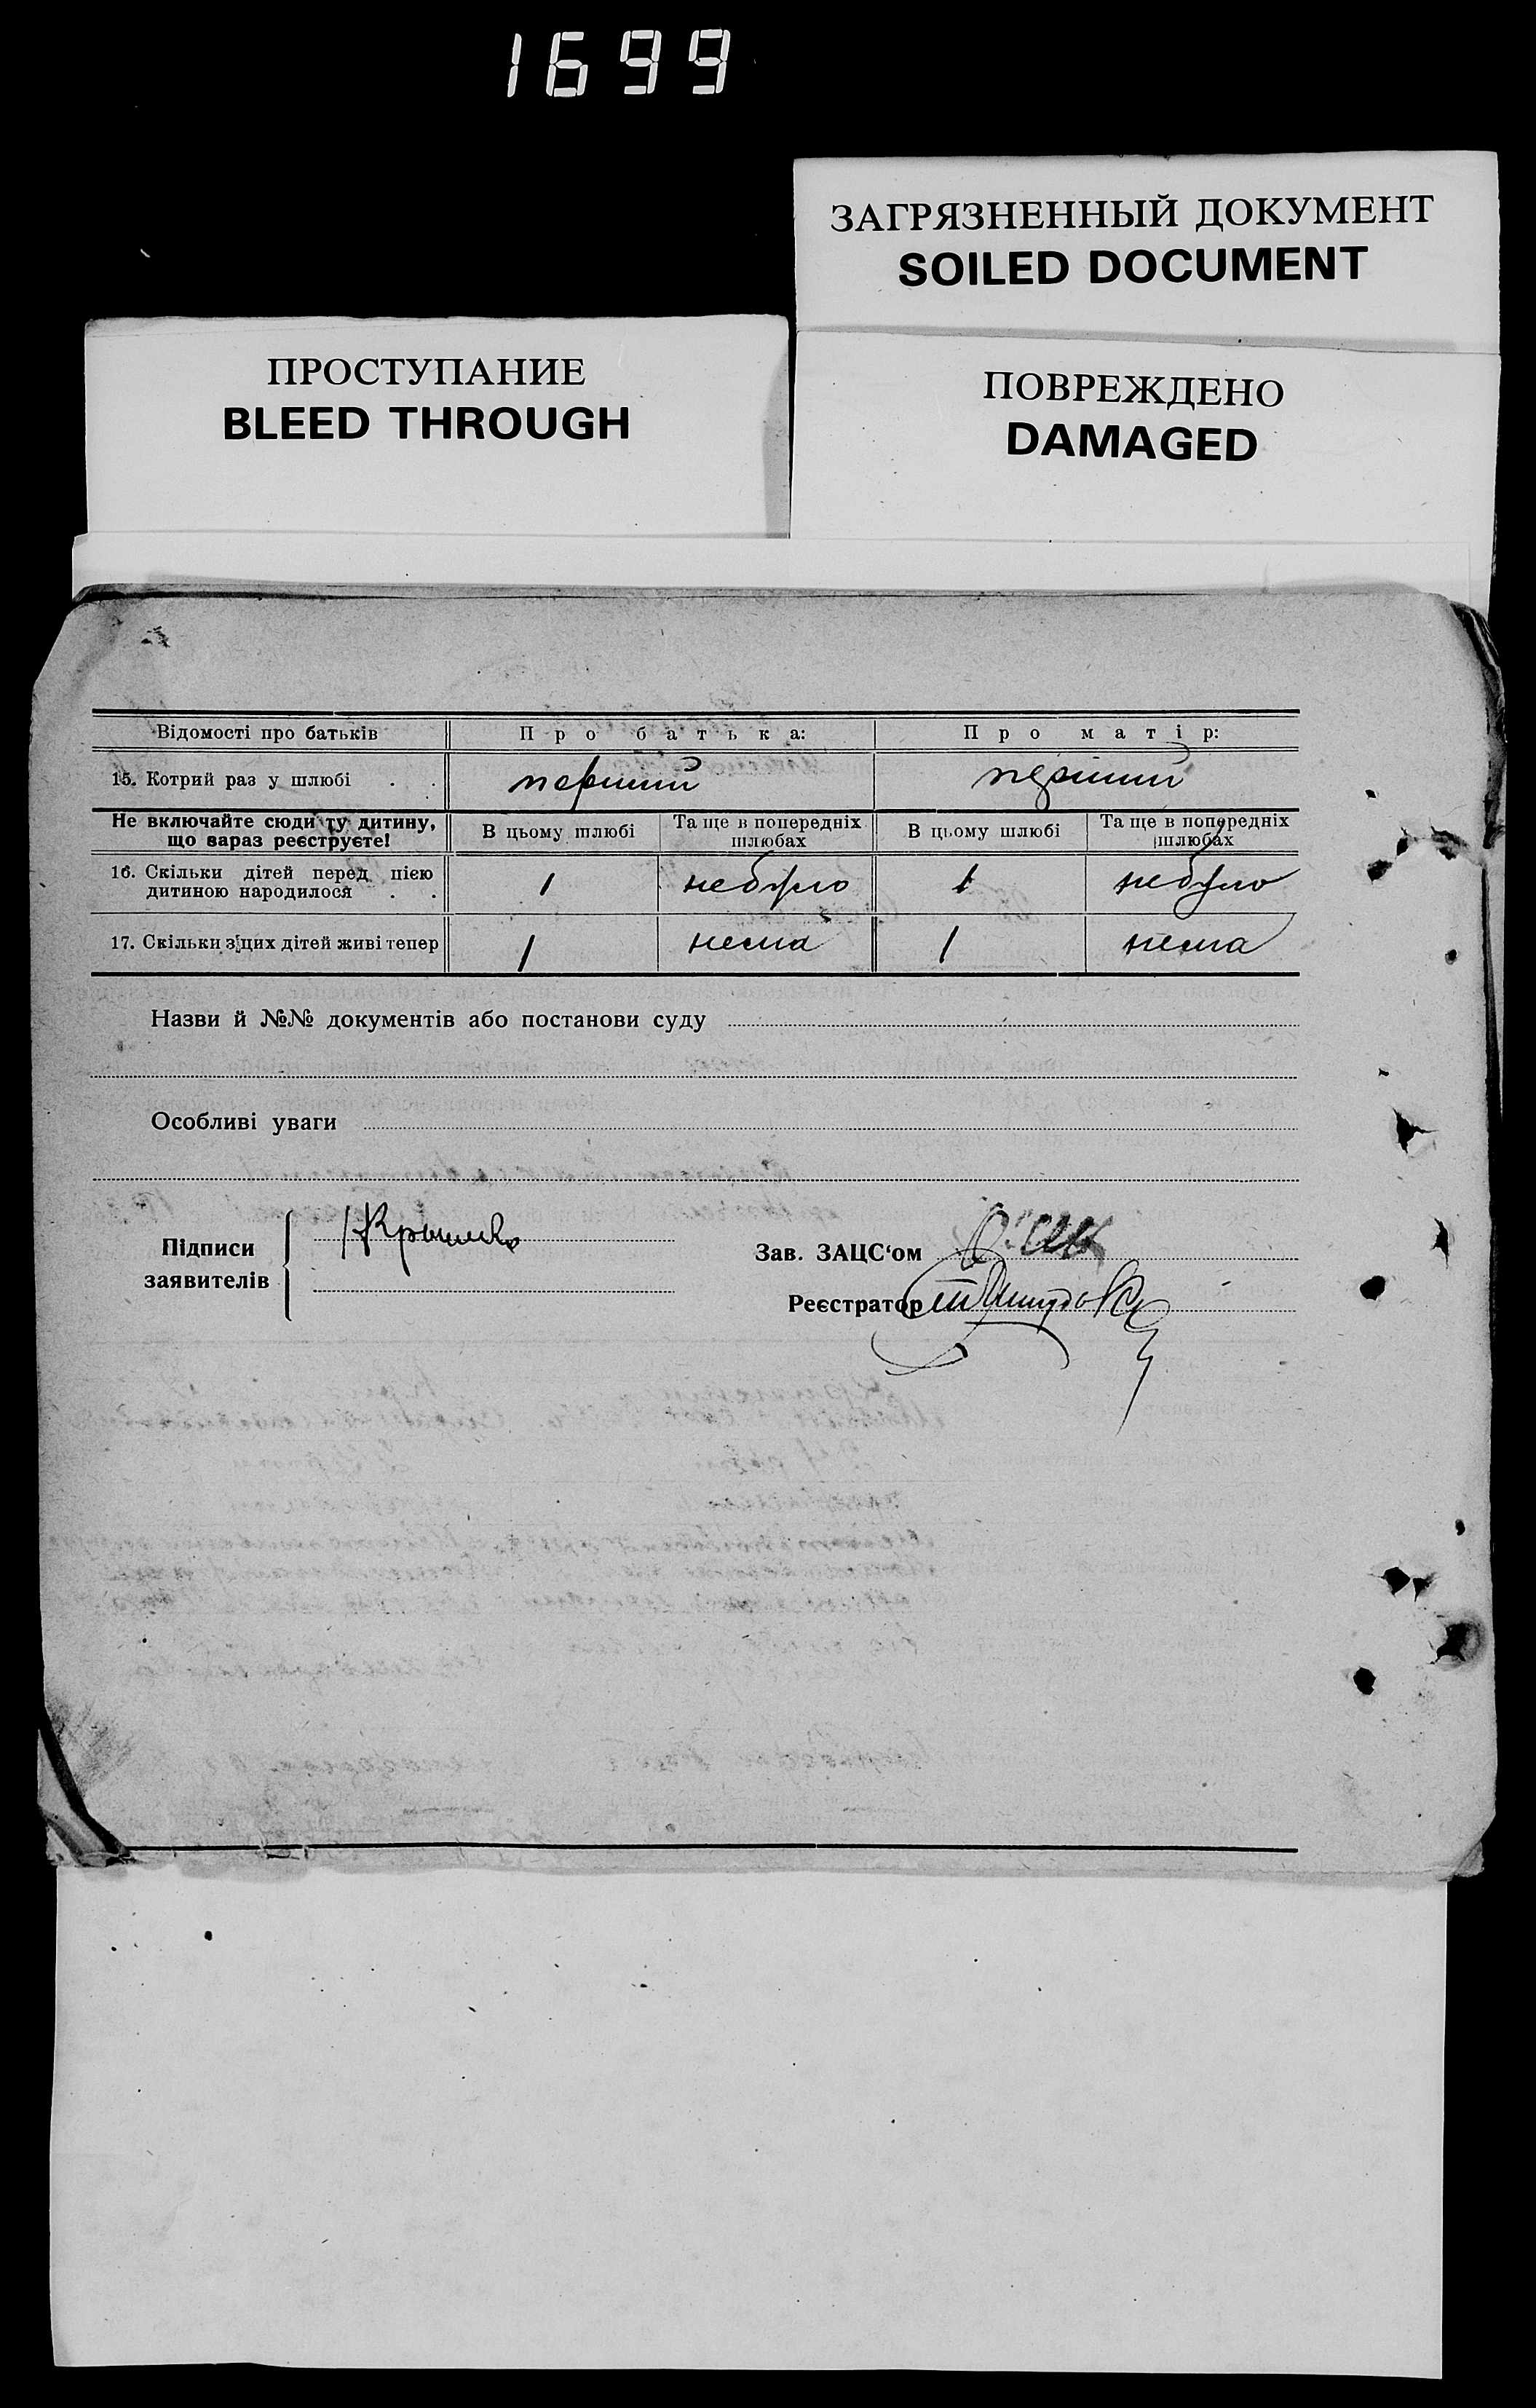 1699
ЗАГРЯЗНЕННЫЙ ДОКУМЕНТ
SOILED DOCUMENT
ПРОСТУПАНИЕ
BLEED THROUGH
ПОВРЕЖДЕНО
DAMAGED
Відомості про батьків Про батька: Про матір:
15. Котрий раз у шлюбі . . перший перший
Не включайте сюди ту дитину, що зараз реєструєте! В цьому шлюбі Та ще в попередніх шлюбах В цьому шлюбі Та ще в попередніх шлюбах
16. Скільки дітей перед цією дитиною народилося . . 1 небуло 1 небуло
17. Скільки з цих дітей живі тепер 1 нема 1 нема
Назви й №№ документів або постанови суду
Особливі уваги
Підписи заявителів
Зав. ЗАЦС‘ом
Реєстратор